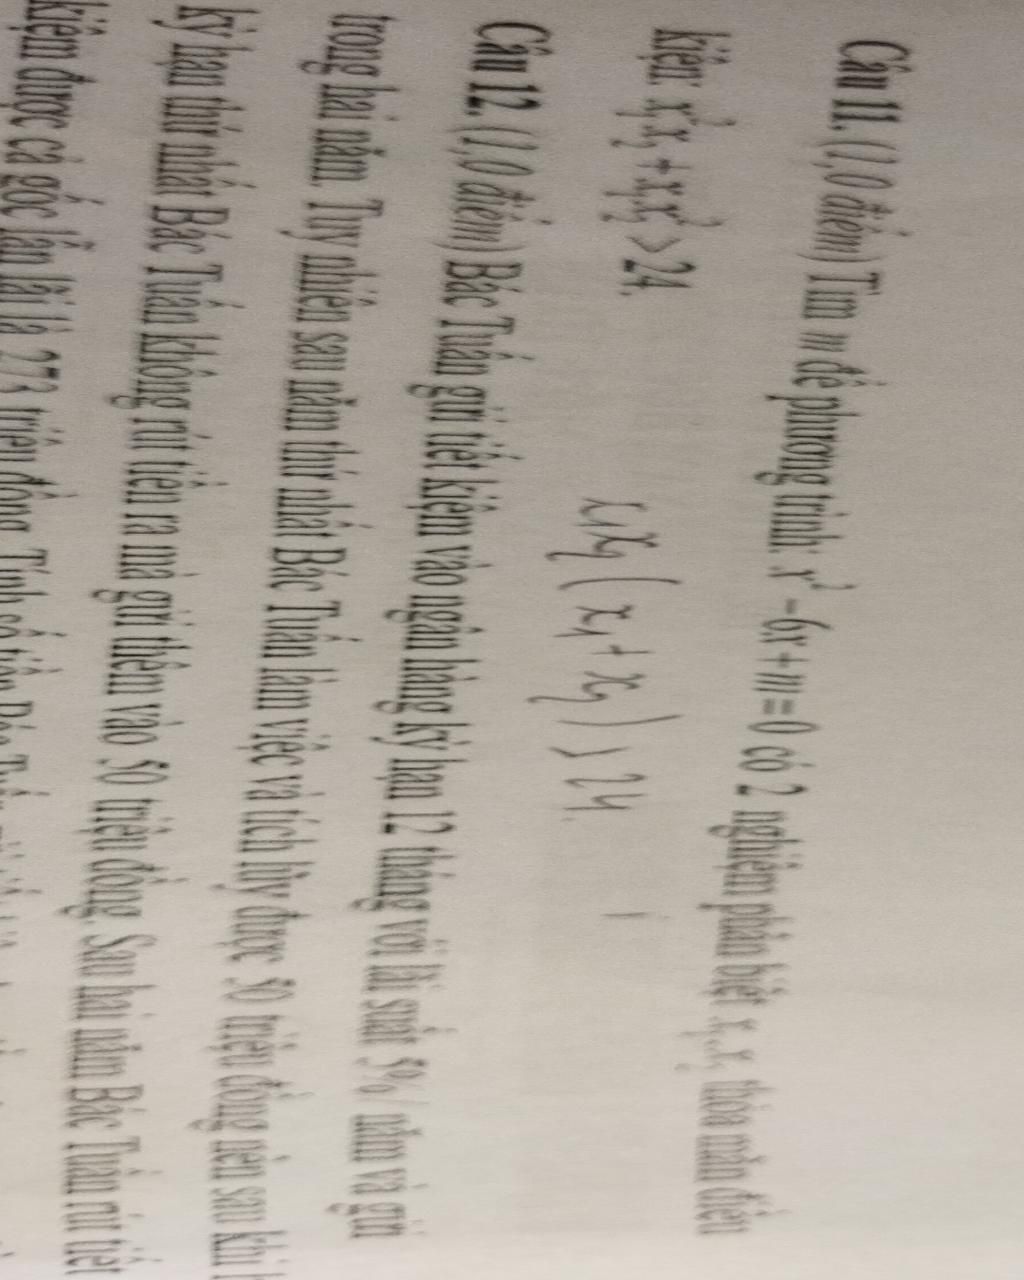 Câu 11. (1,0 điểm) Tìm m để phương trình: x² - 6x + m = 0 có 2 nghiệm phân biệt x₁, x₂ thỏa mãn điều
kiện: x₁²x₂ + x₁x₂² > 24.
x₁x₂ ( x₁ + x₂ ) > 24.
Câu 12. (1,0 điểm) Bác Tuấn gửi tiết kiệm vào ngân hàng kỳ hạn 12 tháng với lãi suất 5%/ năm và gửi
trong hai năm. Tuy nhiên sau năm thứ nhất Bác Tuấn làm việc và tích lũy được 50 triệu đồng nên sau khi
kỳ hạn thứ nhất Bác Tuấn không rút tiền ra mà gửi thêm vào 50 triệu đồng. Sau hai năm Bác Tuấn rút tiết
kiệm được cả gốc lẫn lãi là 273 triệu đồng. Tính số tiền